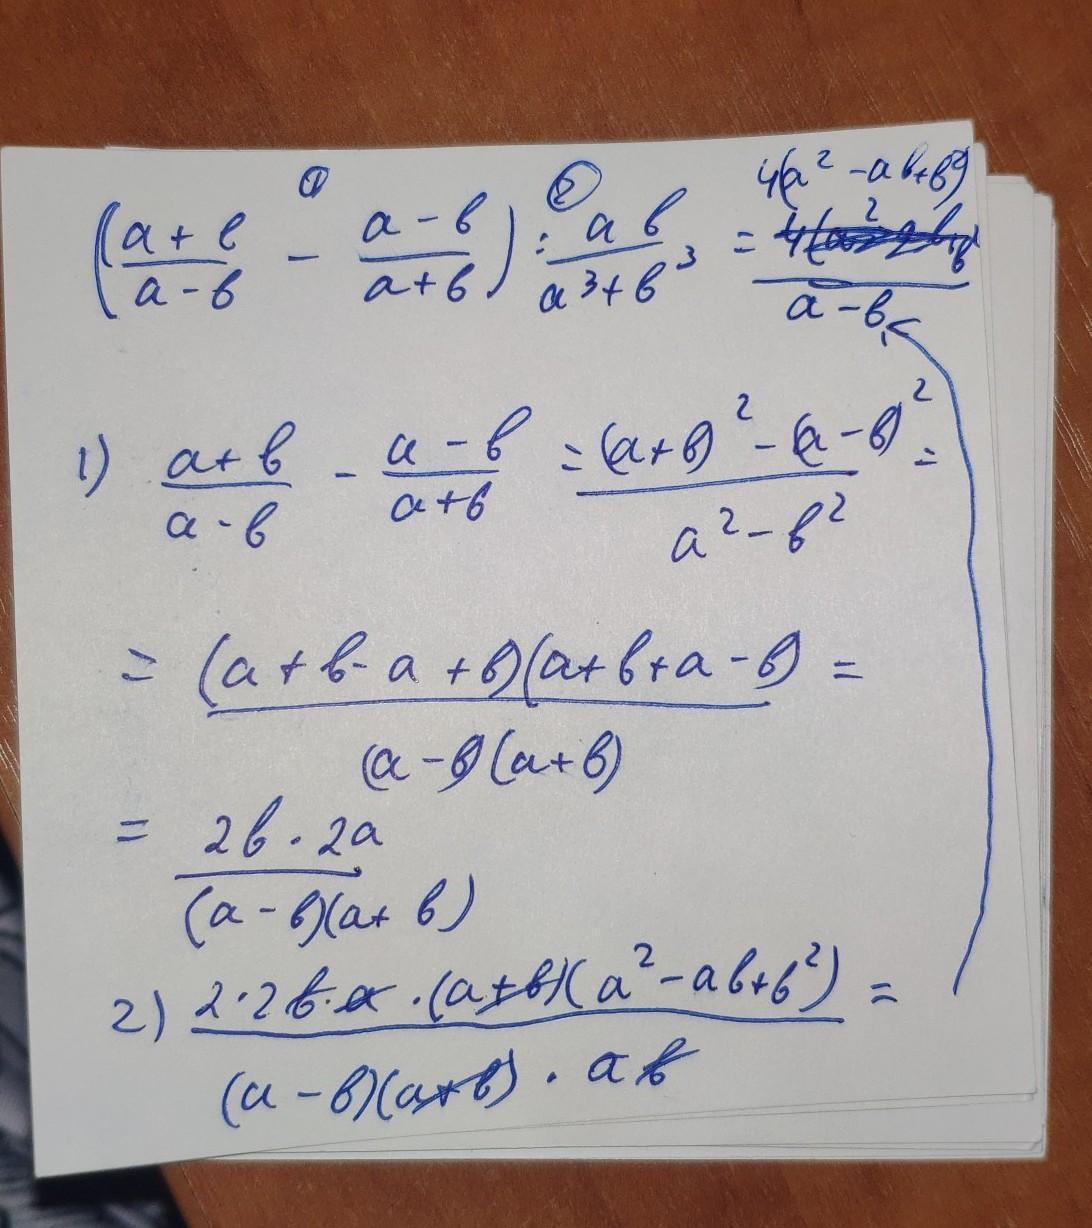 ① ②
(a+b)/(a-b) - (a-b)/(a+b)) : ab/(a³+b³) = 4(a²-ab+b²)/(a-b)
1) (a+b)/(a-b) - (a-b)/(a+b) = ((a+b)² - (a-b)²)/(a²-b²) =
= (a+b-a+b)(a+b+a-b)/((a-b)(a+b)) =
= 2b·2a/((a-b)(a+b))
2) 2·2b·a·(a+b)(a²-ab+b²)/((a-b)(a+b)·ab) =